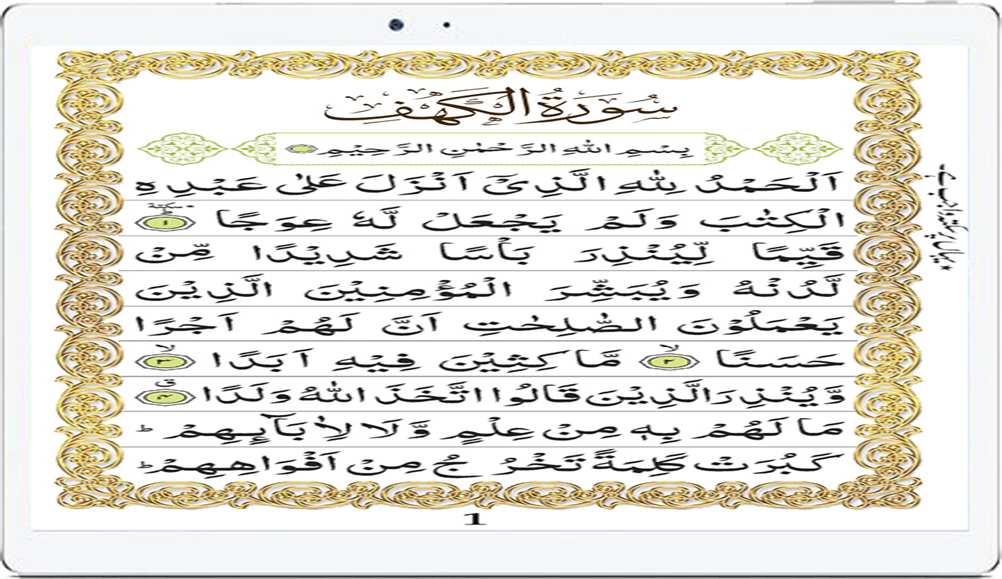 سُوْرَةُ الْكَهْفِ
بِسْمِ اللهِ الرَّحْمٰنِ الرَّحِيْمِ
اَلْحَمْدُ لِلّٰهِ الَّذِیْۤ اَنْزَلَ عَلٰی عَبْدِهِ
الْكِتٰبَ وَلَمْ یَجْعَلْ لَّهٗ عِوَجًا ﴿۱﴾
قَیِّمًا لِّیُنْذِرَ بَاْسًا شَدِیْدًا مِّنْ
لَّدُنْهُ وَیُبَشِّرَ الْمُؤْمِنِیْنَ الَّذِیْنَ
یَعْمَلُوْنَ الصّٰلِحٰتِ اَنَّ لَهُمْ اَجْرًا
حَسَنًا ﴿۲﴾ مَّاكِثِیْنَ فِیْهِ اَبَدًا ﴿۳﴾
وَّیُنْذِرَ الَّذِیْنَ قَالُوا اتَّخَذَ اللّٰهُ وَلَدًا ﴿۴﴾
مَا لَهُمْ بِهٖ مِنْ عِلْمٍ وَّلَا لِاٰبَآىِٕهِمْ ؕ
كَبُرَتْ كَلِمَةً تَخْرُجُ مِنْ اَفْوَاهِهِمْ ؕ
1